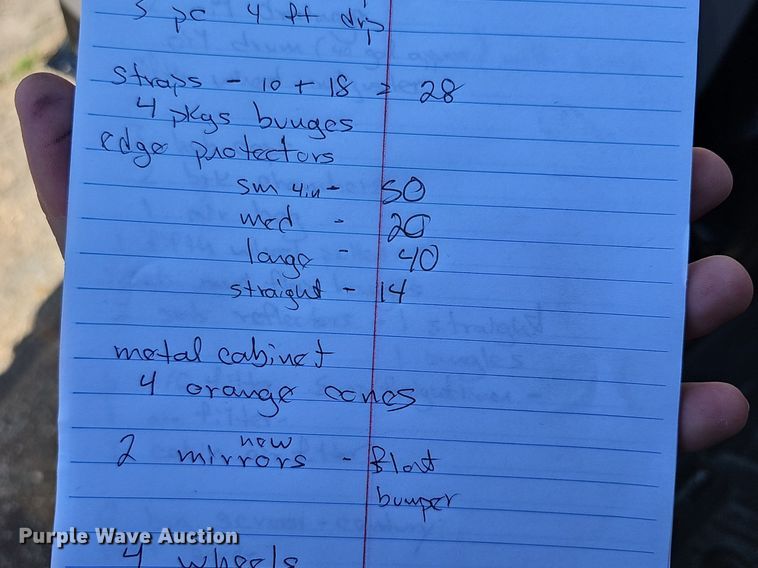 5 pc 4 ft drip
straps - 10 + 18 = 28
4 pkgs bunges
edge protectors
sm 4in - 50
med - 20
large - 40
straight - 14
metal cabinet
4 orange cones
2 new mirrors - front
bumper
4 wheels
Purple Wave Auction